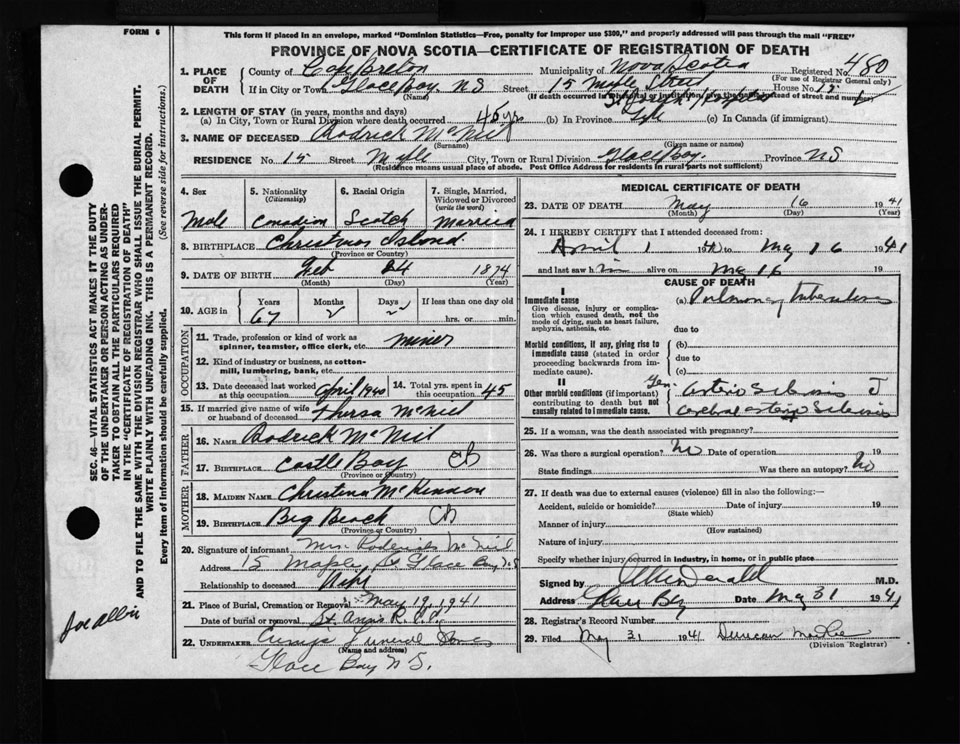 FORM 6
This form if placed in an envelope, marked "Dominion Statistics—Free, penalty for improper use $300," and properly addressed will pass through the mail "FREE"
PROVINCE OF NOVA SCOTIA—CERTIFICATE OF REGISTRATION OF DEATH
1. PLACE OF DEATH County of Cape Breton Municipality of Nova Scotia Registered No. 480
(For use of Registrar General only)
If in City or Town Glace Bay, N S Street 15 Street House No.
(If death occurred in hospital or institution, give the name instead of street and number)
St Joseph's Hospital
2. LENGTH OF STAY (in years, months and days)
(a) In City, Town or Rural Division where death occurred 45 yrs (b) In Province Life (c) In Canada (if immigrant)
3. NAME OF DECEASED Rodrick McNeil
(Surname) (Given name or names)
RESIDENCE No. 15 Street City, Town or Rural Division Glace Bay. Province NS
(Residence means usual place of abode. Post Office Address for residents in rural parts not sufficient)
4. Sex Male
5. Nationality (Citizenship) Canadian
6. Racial Origin Scotch
7. Single, Married, Widowed or Divorced (write the word) Married
8. BIRTHPLACE Christmas Island
(Province or Country)
9. DATE OF BIRTH Feb 24 1874
(Month) (Day) (Year)
10. AGE in Years 67 Months 2 Days If less than one day old hrs. or min.
OCCUPATION
11. Trade, profession or kind of work as spinner, teamster, office clerk, etc. miner
12. Kind of industry or business, as cotton-mill, lumbering, bank, etc.
13. Date deceased last worked at this occupation April 1940 14. Total yrs. spent in this occupation 45
15. If married give name of wife or husband of deceased Thersa McNeil
FATHER
16. NAME Rodrick McNeil
17. BIRTHPLACE Castle Bay CB
(Province or Country)
MOTHER
18. MAIDEN NAME Christina McKinnon
19. BIRTHPLACE Big Beach CB
(Province or Country)
20. Signature of informant Mrs Roderick McNeil
Address 15 Maple St Glace Bay N S
Relationship to deceased Wife
21. Place of Burial, Cremation or Removal May 19, 1941
Date of burial or removal St. Anns R.C.
22. UNDERTAKER Funeral Home
(Name and address)
Glace Bay N S.
MEDICAL CERTIFICATE OF DEATH
23. DATE OF DEATH May 16 1941
(Month) (Day) (Year)
24. I HEREBY CERTIFY that I attended deceased from:
April 1 to May 16 1941
and last saw him alive on May 16 19
CAUSE OF DEATH
I
Immediate cause (a) Pulmonary tuberculosis
Give disease, injury or complication which caused death, not the mode of dying, such as heart failure, asphyxia, asthenia, etc.
due to
Morbid conditions, if any, giving rise to immediate cause (stated in order proceeding backwards from immediate cause).
(b)
due to
(c)
II
Other morbid conditions (if important) contributing to death but not causally related to immediate cause.
Gen. arterio Sclerosis
Cerebral arterio Sclerosis
25. If a woman, was the death associated with pregnancy?
26. Was there a surgical operation? No Date of operation 19
State findings Was there an autopsy? No
27. If death was due to external causes (violence) fill in also the following:—
Accident, suicide or homicide? Date of injury 19
(State which)
Manner of injury
(How sustained)
Nature of injury
Specify whether injury occurred in industry, in home, or in public place
Signed by M.D.
Address Glace Bay Date May 31 1941
28. Registrar's Record Number
29. Filed May 31 1941 Duncan
(Division Registrar)
SEC. 46—VITAL STATISTICS ACT MAKES IT THE DUTY
OF THE UNDERTAKER OR PERSON ACTING AS UNDER-
TAKER TO OBTAIN ALL THE PARTICULARS REQUIRED
IN THE "CERTIFICATE OF REGISTRATION OF DEATH"
AND TO FILE THE SAME WITH THE DIVISION REGISTRAR WHO SHALL ISSUE THE BURIAL PERMIT.
WRITE PLAINLY WITH UNFADING INK. THIS IS A PERMANENT RECORD.
Every item of Information should be carefully supplied. (See reverse side for instructions.)